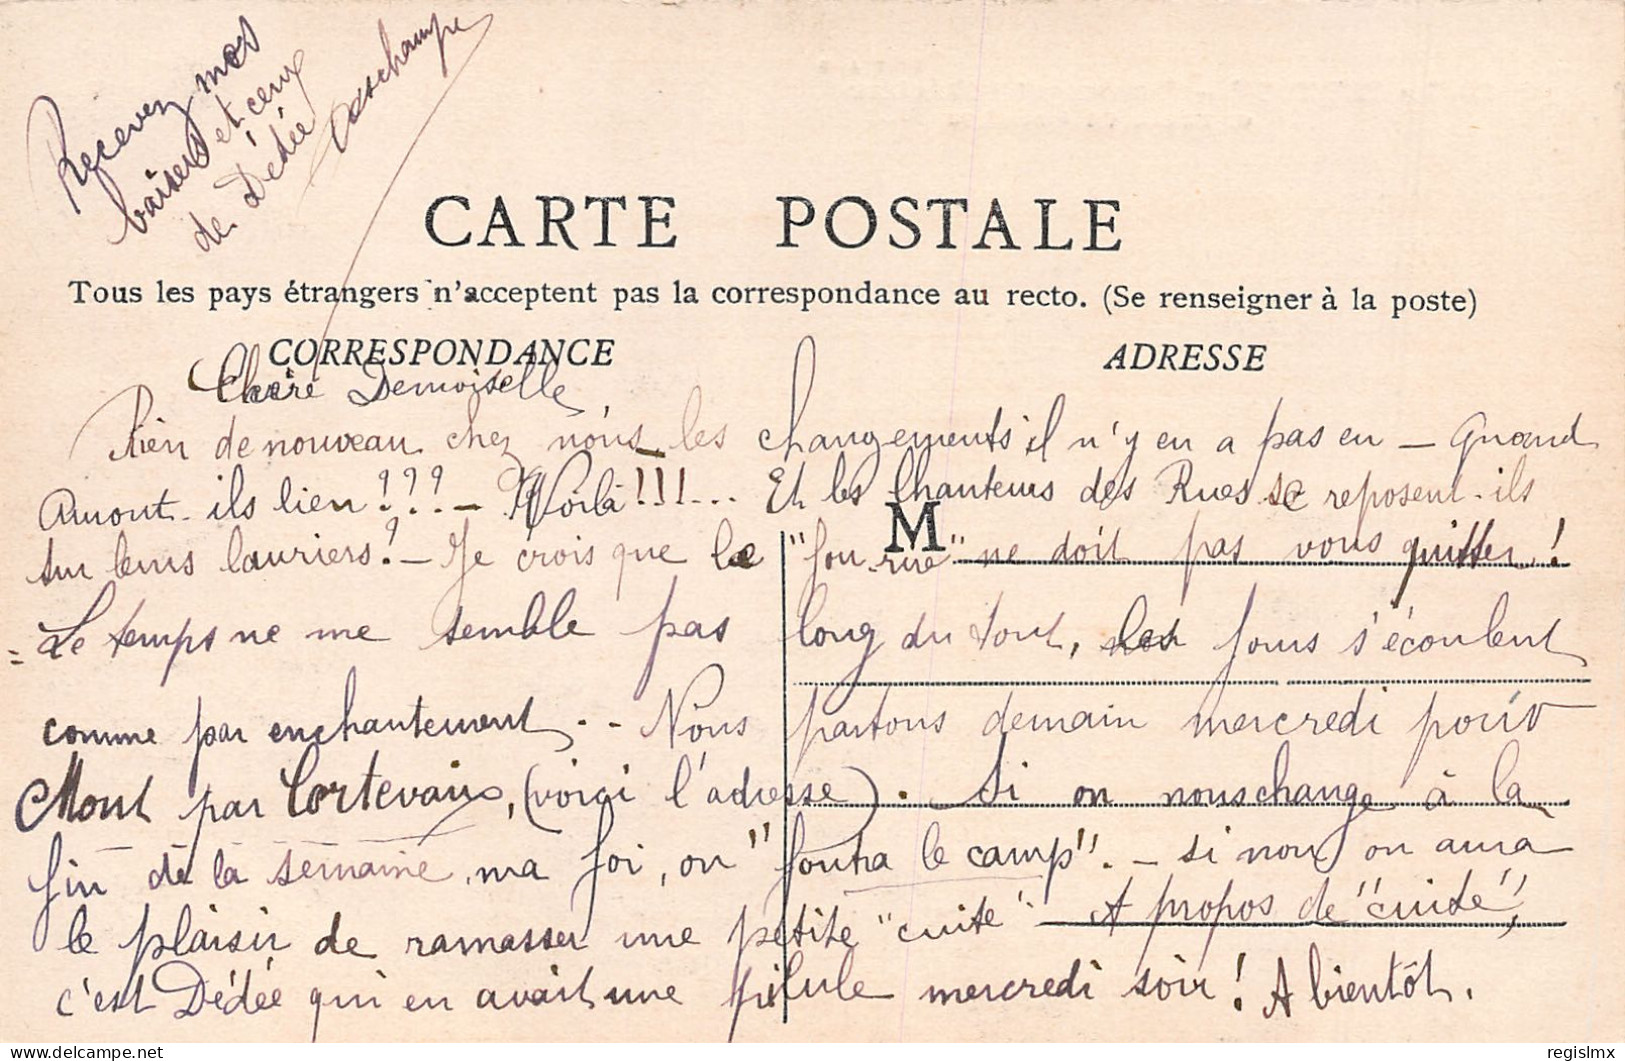 Recevez mes
baisers et ceux
de Dédée
Deschamps
CARTE POSTALE
Tous les pays étrangers n'acceptent pas la correspondance au recto. (Se renseigner à la poste)
CORRESPONDANCE
ADRESSE
Chère Demoiselle
Rien de nouveau chez nous les changements il n'y en a pas eu — Quand
Auront-ils lieu ? ? ? — Voilà ! ! ! ... Et les Chanteurs des Rues se reposent-ils
sur leurs lauriers ? — Je crois que le "fou-rire" ne doit pas vous quitter !
M
= Le temps ne me semble pas long du tout, les jours s'écoulent
comme par enchantement .. Nous partons demain mercredi pour
Mont par Cortevaix, (voici l'adresse). Si on nous change à la
fin de la semaine, ma foi, on "foutra le camp". — si non on aura
le plaisir de ramasser une petite "cuite" — A propos de "cuite",
c'est Dédée qui en avait une pilule mercredi soir ! A bientôt.
delcampe.net
regislmx